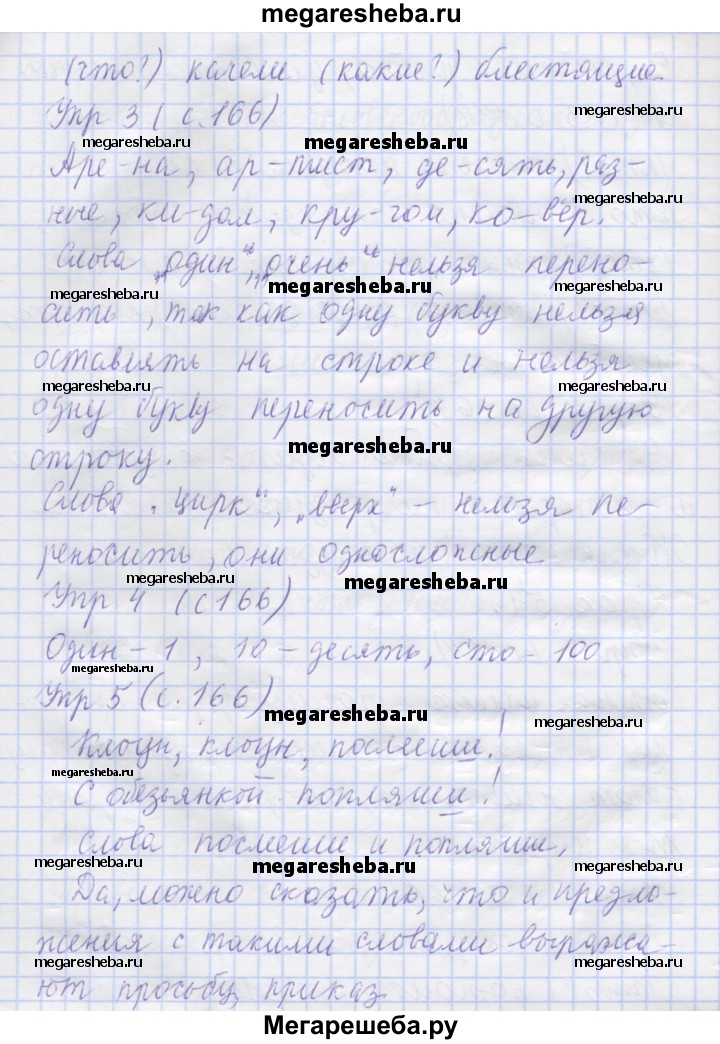 megaresheba.ru
(что?) качели (какие?) блестящие.
Упр 3 ( с.166)
megaresheba.ru
megaresheba.ru megaresheba.ru
Аре-на, ар-тист, де-сять, раз-
megaresheba.ru megaresheba.ru
ные, ки-дал, кру-гом, ко-вёр.
megaresheba.ru
Слова „один“, „очень“ нельзя перено-
megaresheba.ru megaresheba.ru megaresheba.ru
сить, так как одну букву нельзя
оставлять на строке и нельзя
megaresheba.ru megaresheba.ru
одну букву переносить на другую
megaresheba.ru
строку.
Слова „цирк“, „вверх“ – нельзя пе-
реносить, они односложные
megaresheba.ru megaresheba.ru
Упр 4 (с166)
Один – 1, 10 – десять, сто – 100
megaresheba.ru
Упр 5 (с.166)
megaresheba.ru megaresheba.ru
Клоун, клоун, посмеши!
megaresheba.ru
С обезьянкой попляши!
Слова посмеши и попляши,
megaresheba.ru megaresheba.ru megaresheba.ru
Да, можно сказать, что и предло-
жения с такими словами выража-
megaresheba.ru megaresheba.ru megaresheba.ru
ют просьбу, приказ
Мегарешеба.ру